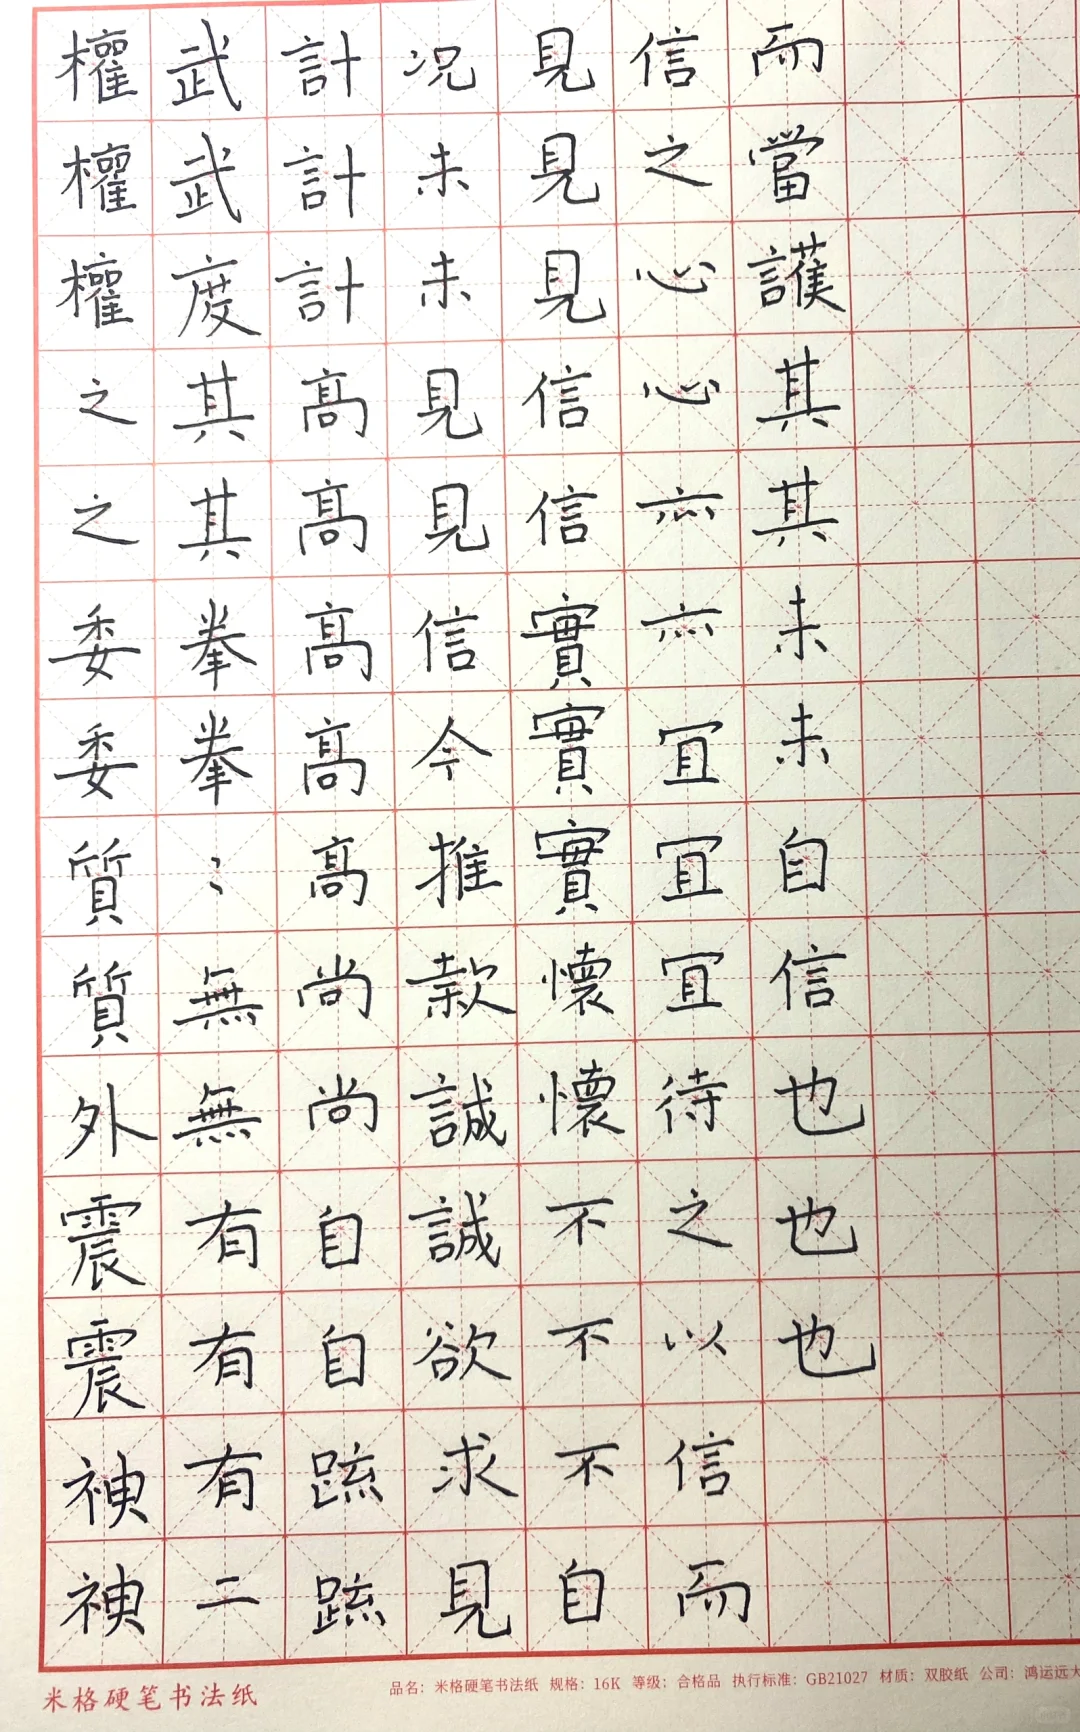 權權權之之委委質質外震震神神
武武度其其拳拳〻無無有有有二
計計計髙髙髙髙髙尚尚自自䟽䟽
况未未見見信今推款誠誠欲求見
見見見信信實實實懷懷不不不自
信之心心亦亦宜宜宜待之以信而
而當護其其未未自信也也也
米格硬笔书法纸
品名：米格硬笔书法纸 规格：16K 等级：合格品 执行标准：GB21027 材质：双胶纸 公司：鸿运远大